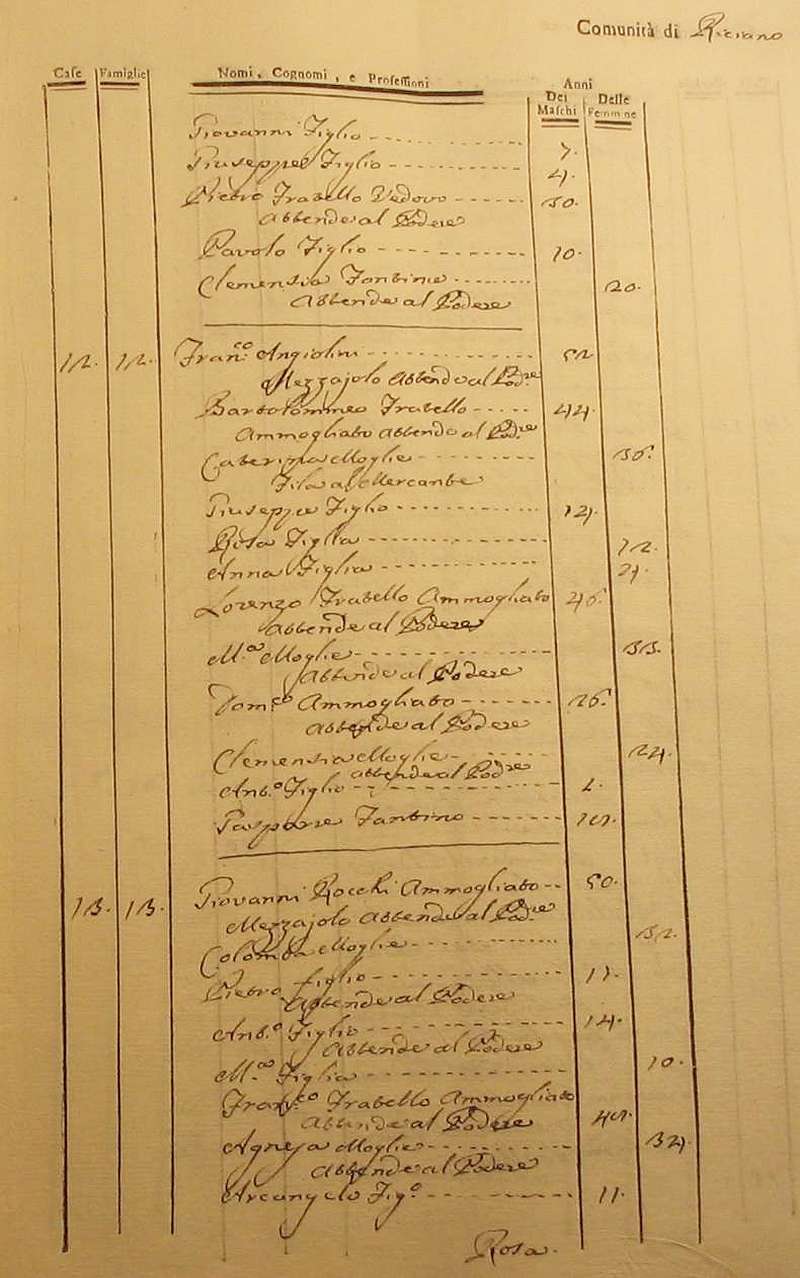 Comunità di
Case Famiglie Nomi, Cognomi, e Professioni Anni
Dei Delle
Maschi Femmine
Giovanni Figlio 7.
Giuseppe Figlio 4.
Pietro Fratello Vedovo 50.
Attende al Podere
Pavolo Figlio 10.
Clementia Fantina 20.
Attende al Podere
12. 12. Fran.co Angiolini 52
Mezzajolo Attende al Pod.re
Bartolommeo Fratello 44.
Ammogliato attende al Pod.e
Caterina Moglie 36.
Fila al Mercante
Giuseppe Figlio 14.
Rosa Figlia 12.
Anna Figlia
Lorenzo Fratello Ammogliato 46.
Attende al Podere
M.a Moglie 33.
Attende al Podere
Dom.co Ammogliato 26.
Attende al Podere
Clementia Moglie 24.
attende al Podre
Ant.o Figlio
Gaspare Fantino
13. 13. Giovanni Rocchi Ammogliato 50.
Mezzajolo Attende al Pod.re
Colomba Moglie 52.
Pietro figlio 17.
Attende al Podere
Ant.o Figlio 14.
Attende al Podere
M.a Figlia 10.
Fran.co Fratello Ammogliato
Attende al Podere
Agnesa Moglie 34.
Attende al Podere
Arcangelo Fig.o 11.
Rosa.